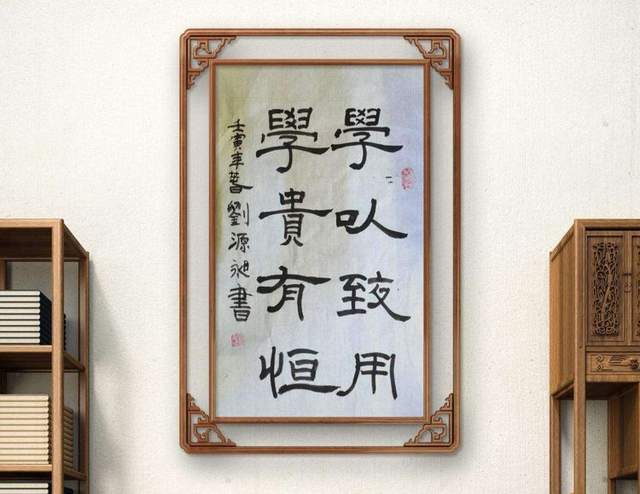 學以致用
學貴有恒
壬寅年春劉源昶書